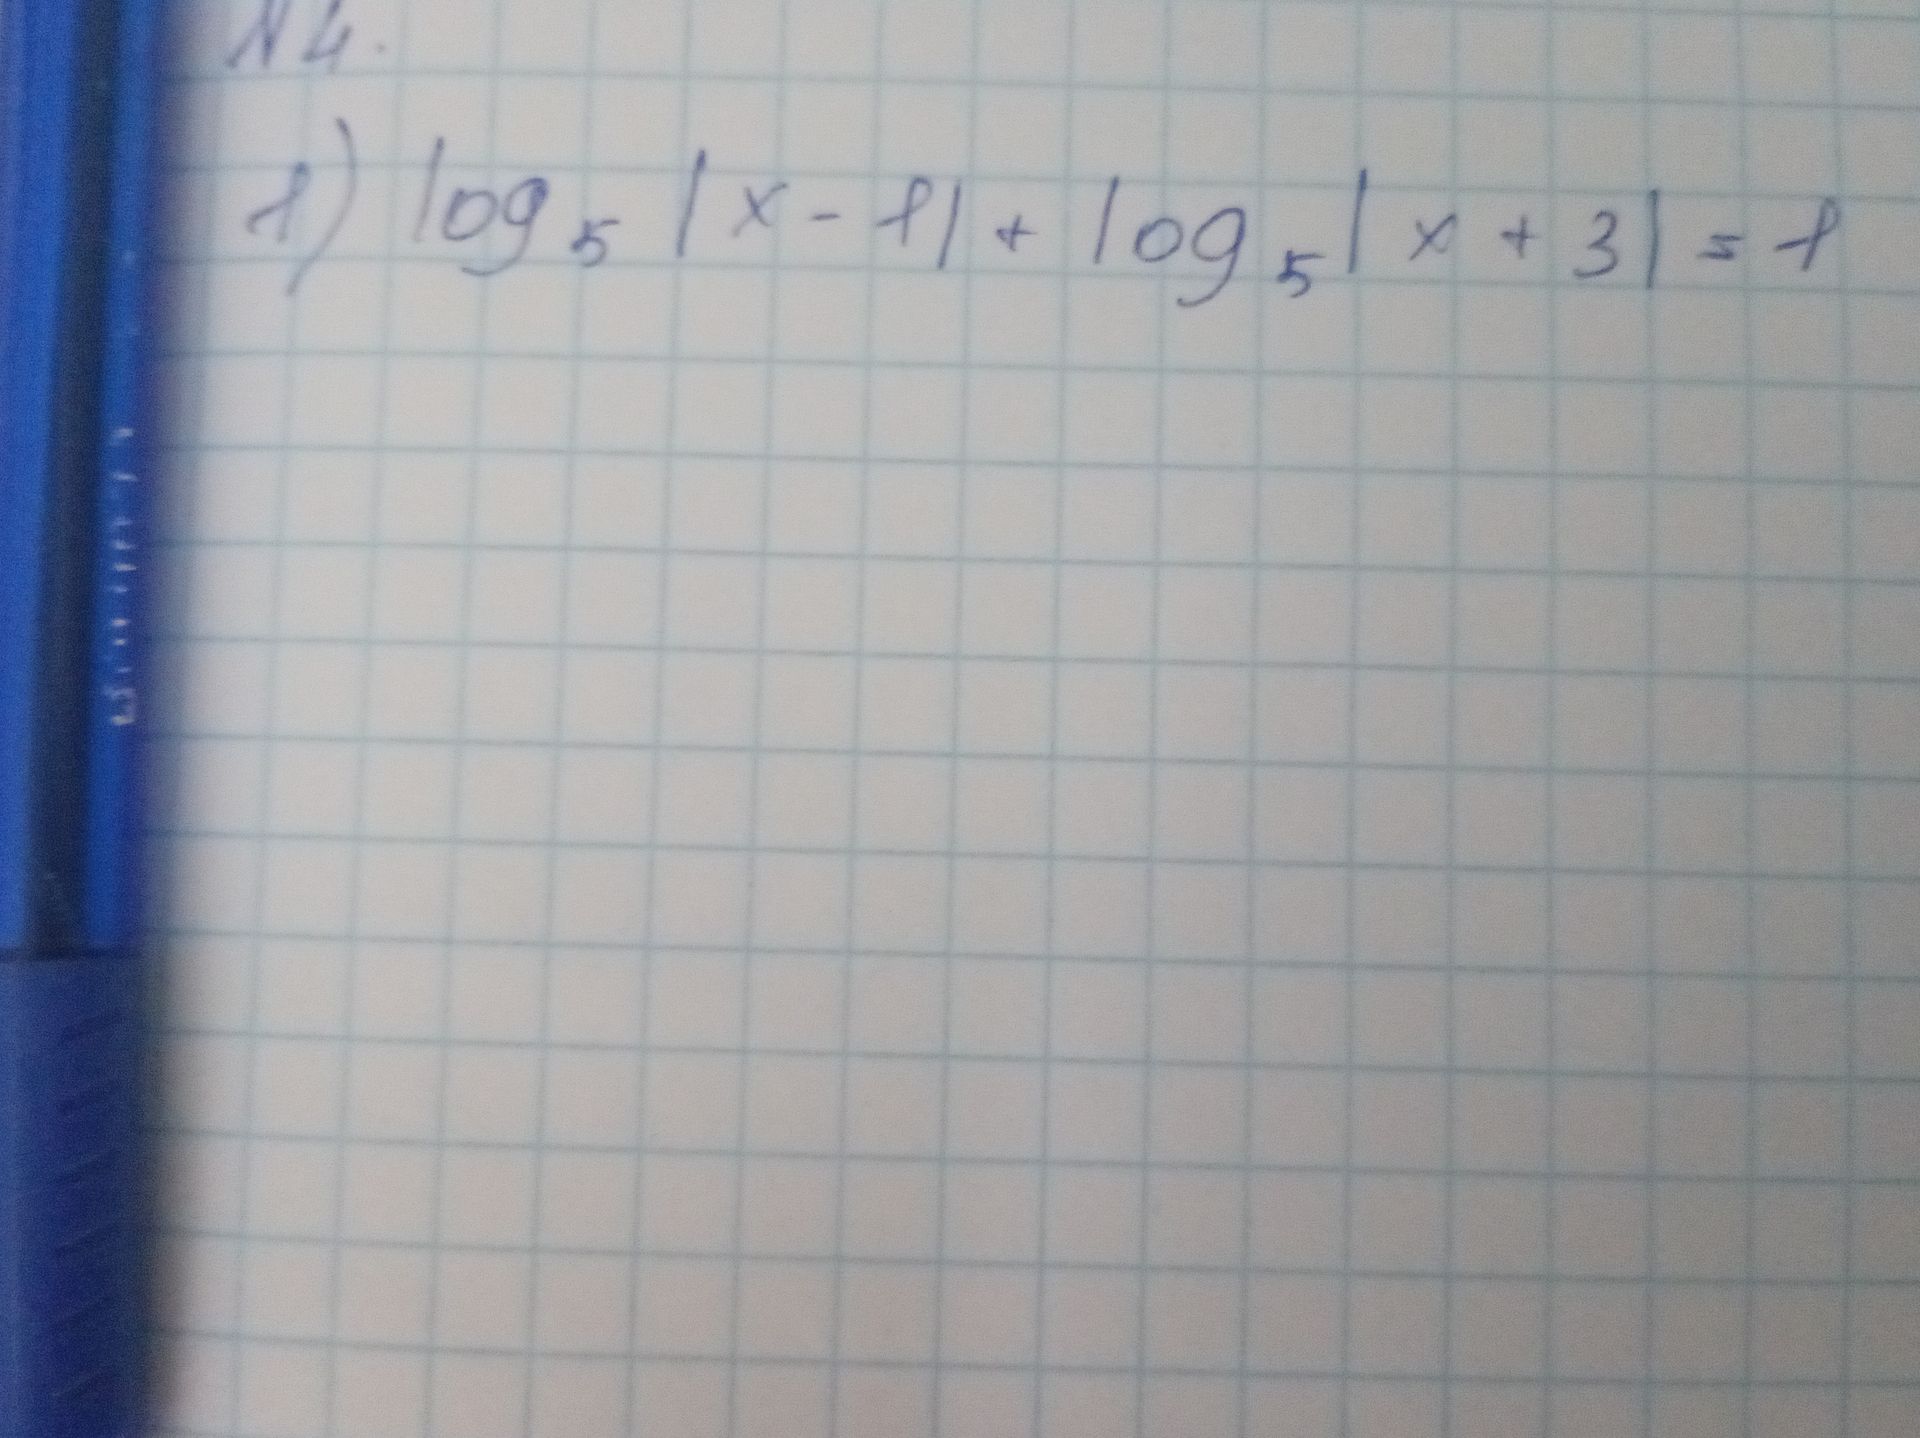 №4.
1) log₅|x-1|+log₅|x+3|=1